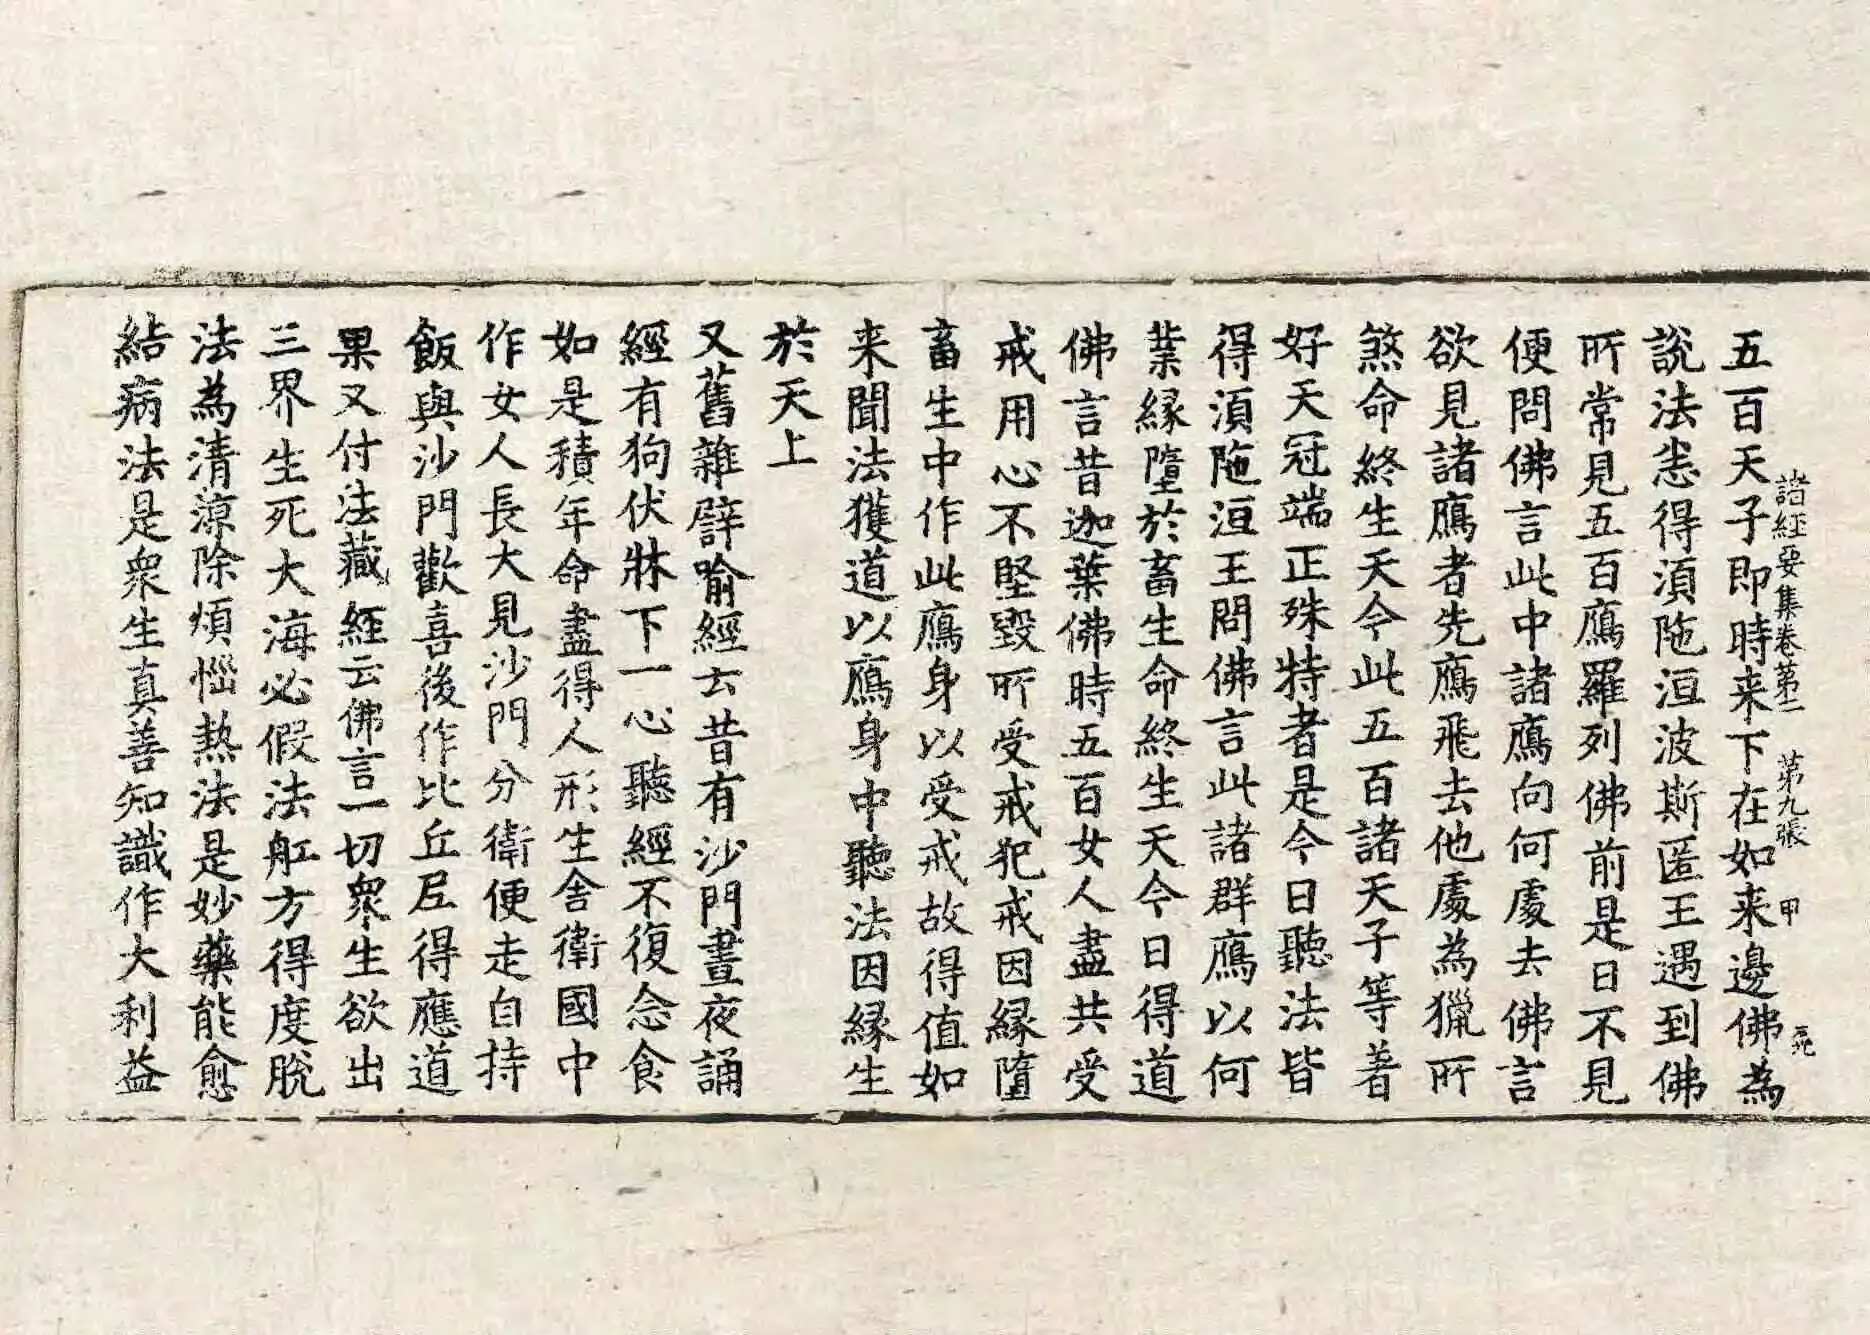 諸經要集卷第二 第九張 甲
五百天子即時来下在如来邊佛為
說法悉得湏陁洹波斯匿王遇到佛
所常見五百鴈羅列佛前是日不見
便問佛言此中諸鴈向何處去佛言
欲見諸鴈者先鴈飛去他處為獵所
煞命終生天今此五百諸天子等著
好天冠端正殊特者是今日聽法皆
得湏陁洹王問佛言此諸群鴈以何
業緣墮於畜生命終生天今日得道
佛言昔迦葉佛時五百女人盡共受
戒用心不堅毀所受戒犯戒因緣墮
畜生中作此鴈身以受戒故得值如
来聞法獲道以鴈身中聽法因緣生
於天上
又舊雜譬喻經云昔有沙門晝夜誦
經有狗伏牀下一心聽經不復念食
如是積年命盡得人形生舍衛國中
作女人長大見沙門分衛便走自持
飯與沙門歡喜後作比丘尼得應道
果又付法藏經云佛言一切衆生欲出
三界生死大海必假法舡方得度脫
法為清涼除煩惱熱法是妙藥能愈
結病法是衆生真善知識作大利益